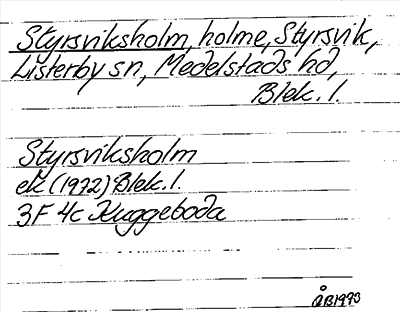 Styrsviksholm, holme, Styrsvik,
Listerby sn, Medelstads hd,
Blek. l.
Styrsviksholm
ek (1972) Blek. l.
3F 4c Kuggeboda
ÅB1993